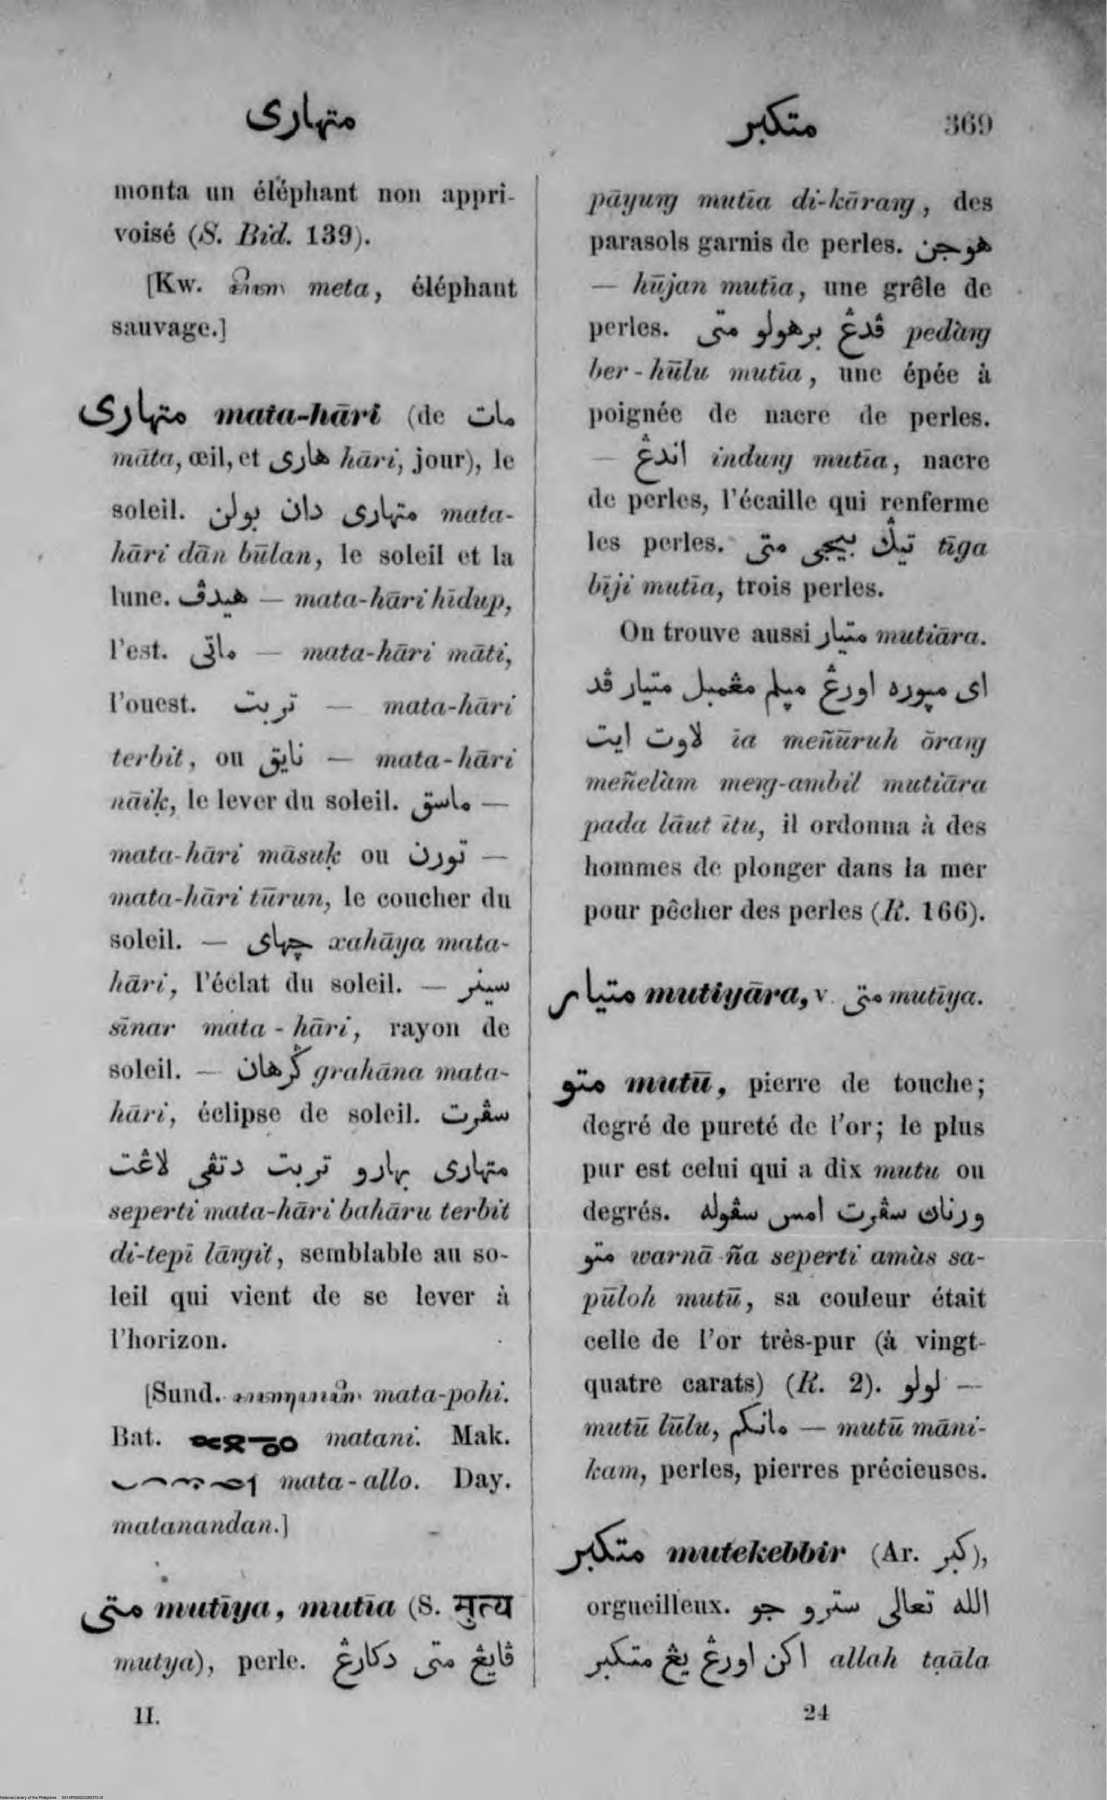 متهارى
متكبر 369
monta un éléphant non appri-
voisé (S. Bid. 139).
[Kw. meta, éléphant
sauvage.]
متهارى mata-hāri (de مات
māta, œil, et هارى hāri, jour), le
soleil. متهارى دان بولن mata-
hāri dān būlan, le soleil et la
lune. هيدڤ — mata-hāri hīdup,
l'est. ماتى — mata-hāri māti,
l'ouest. تربت — mata-hāri
terbit, ou نايق — mata-hāri
nāiḳ, le lever du soleil. ماسق —
mata-hāri māsuḳ ou تورن —
mata-hāri tūrun, le coucher du
soleil. — چهاى xahāya mata-
hāri, l'éclat du soleil. — سينر
sīnar mata-hāri, rayon de
soleil. — ݢرهان grahāna mata-
hāri, éclipse de soleil. سڤرت
متهارى بهارو تربت دتڤى لاڠت
seperti mata-hāri bahāru terbit
di-tepī lāngit, semblable au so-
leil qui vient de se lever à
l'horizon.
[Sund. mata-pohi.
Bat. matani. Mak.
mata-allo. Day.
matanandan.]
متى mutīya, mutīa (S. मुत्य
mutya), perle. ڤايڠ متى دكارڠ
II.
pāyung mutīa di-kārang, des
parasols garnis de perles. هوجن
— hūjan mutīa, une grêle de
perles. ڤدڠ برهولو متى pedàng
ber-hūlu mutīa, une épée à
poignée de nacre de perles.
— اندڠ indung mutīa, nacre
de perles, l'écaille qui renferme
les perles. تيݢ بيجى متى tīga
bīji mutīa, trois perles.
On trouve aussi متيار mutiāra.
اى مپوره اورڠ مپلم مڠمبل متيار ڤد
لاوت ايت īa meñūruh ōrang
meñelàm meng-ambil mutiāra
pada lāut ītu, il ordonna à des
hommes de plonger dans la mer
pour pêcher des perles (R. 166).
متيار mutiyāra, v. متى mutīya.
متو mutū, pierre de touche;
degré de pureté de l'or; le plus
pur est celui qui a dix mutu ou
degrés. ورناك سڤرت امس سڤوله
متو warnā-ña seperti amàs sa-
pūloh mutū, sa couleur était
celle de l'or très-pur (à vingt-
quatre carats) (R. 2). لولو —
mutū lūlu, مانكم — mutū māni-
kam, perles, pierres précieuses.
متكبر mutekebbir (Ar. كبر),
orgueilleux. الله تعالى سترو جو
اكن اورڠ يڠ متكبر allah taāla
24